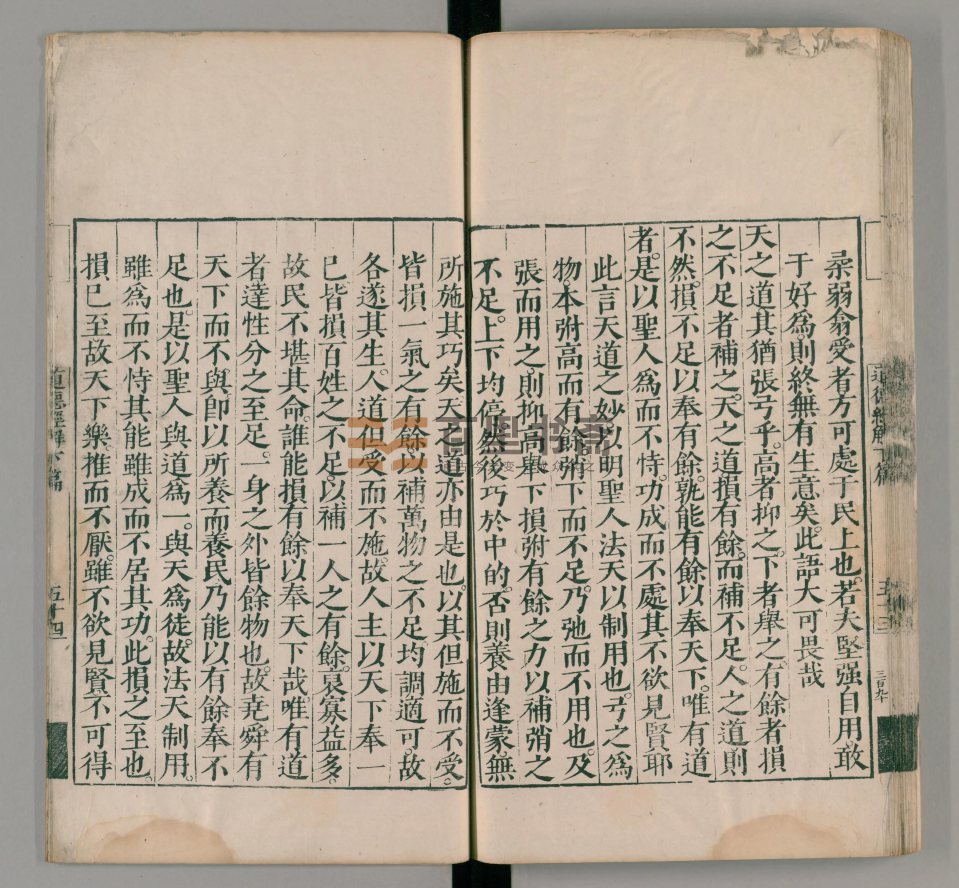 柔弱翕受者方可處于民上也。若夫堅强自用敢
于好爲則終無有生意矣。此語大可畏哉
天之道其猶張弓乎。高者抑之。下者舉之。有餘者損
之不足者補之。天之道損有餘。而補不足。人之道則
不然。損不足以奉有餘。孰能有餘以奉天下。唯有道
者。是以聖人爲而不恃。功成而不處其不欲見賢耶
此言天道之妙以明聖人法天以制用也。弓之爲
物。本弣高而有餘弰下而不足。乃弛而不用也。及
張而用之。則抑高舉下損弣有餘之力以補弰之
不足。上下均停。然後巧於中的。否則養由逢蒙無
所施其巧矣天之道亦由是也。以其但施而不受。
皆損一氣之有餘以補萬物之不足均調適可。故
各遂其生。人道但受而不施。故人主以天下奉一
己皆損百姓之不足。以補一人之有餘。裒寡益多。
故民不堪其命。誰能損有餘以奉天下哉。唯有道
者達性分之至足。一身之外皆餘物也。故堯舜有
天下而不與。卽以所養而養民乃能以有餘奉不
足也。是以聖人與道爲一。與天爲徒。故法天制用。
雖爲而不恃其能雖成而不居其功。此損之至也。
損已至故天下樂。推而不厭。雖不欲見賢不可得
道德經解下篇
三百九十
道德經解下篇
五十四